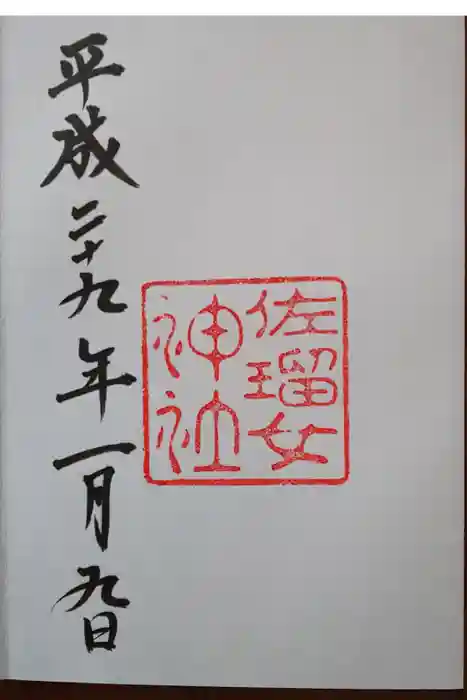 佐瑠女
神社
平成二十九年一月九日